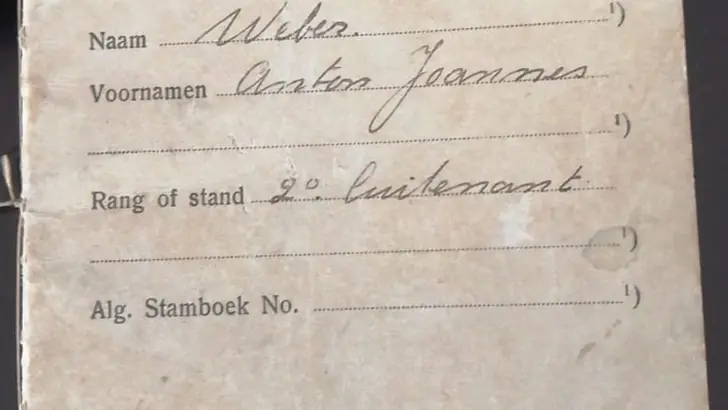 Naam Weber. ¹)
Voornamen Anton Joannes
¹)
Rang of stand 2º. luitenant
¹)
Alg. Stamboek No. ¹)